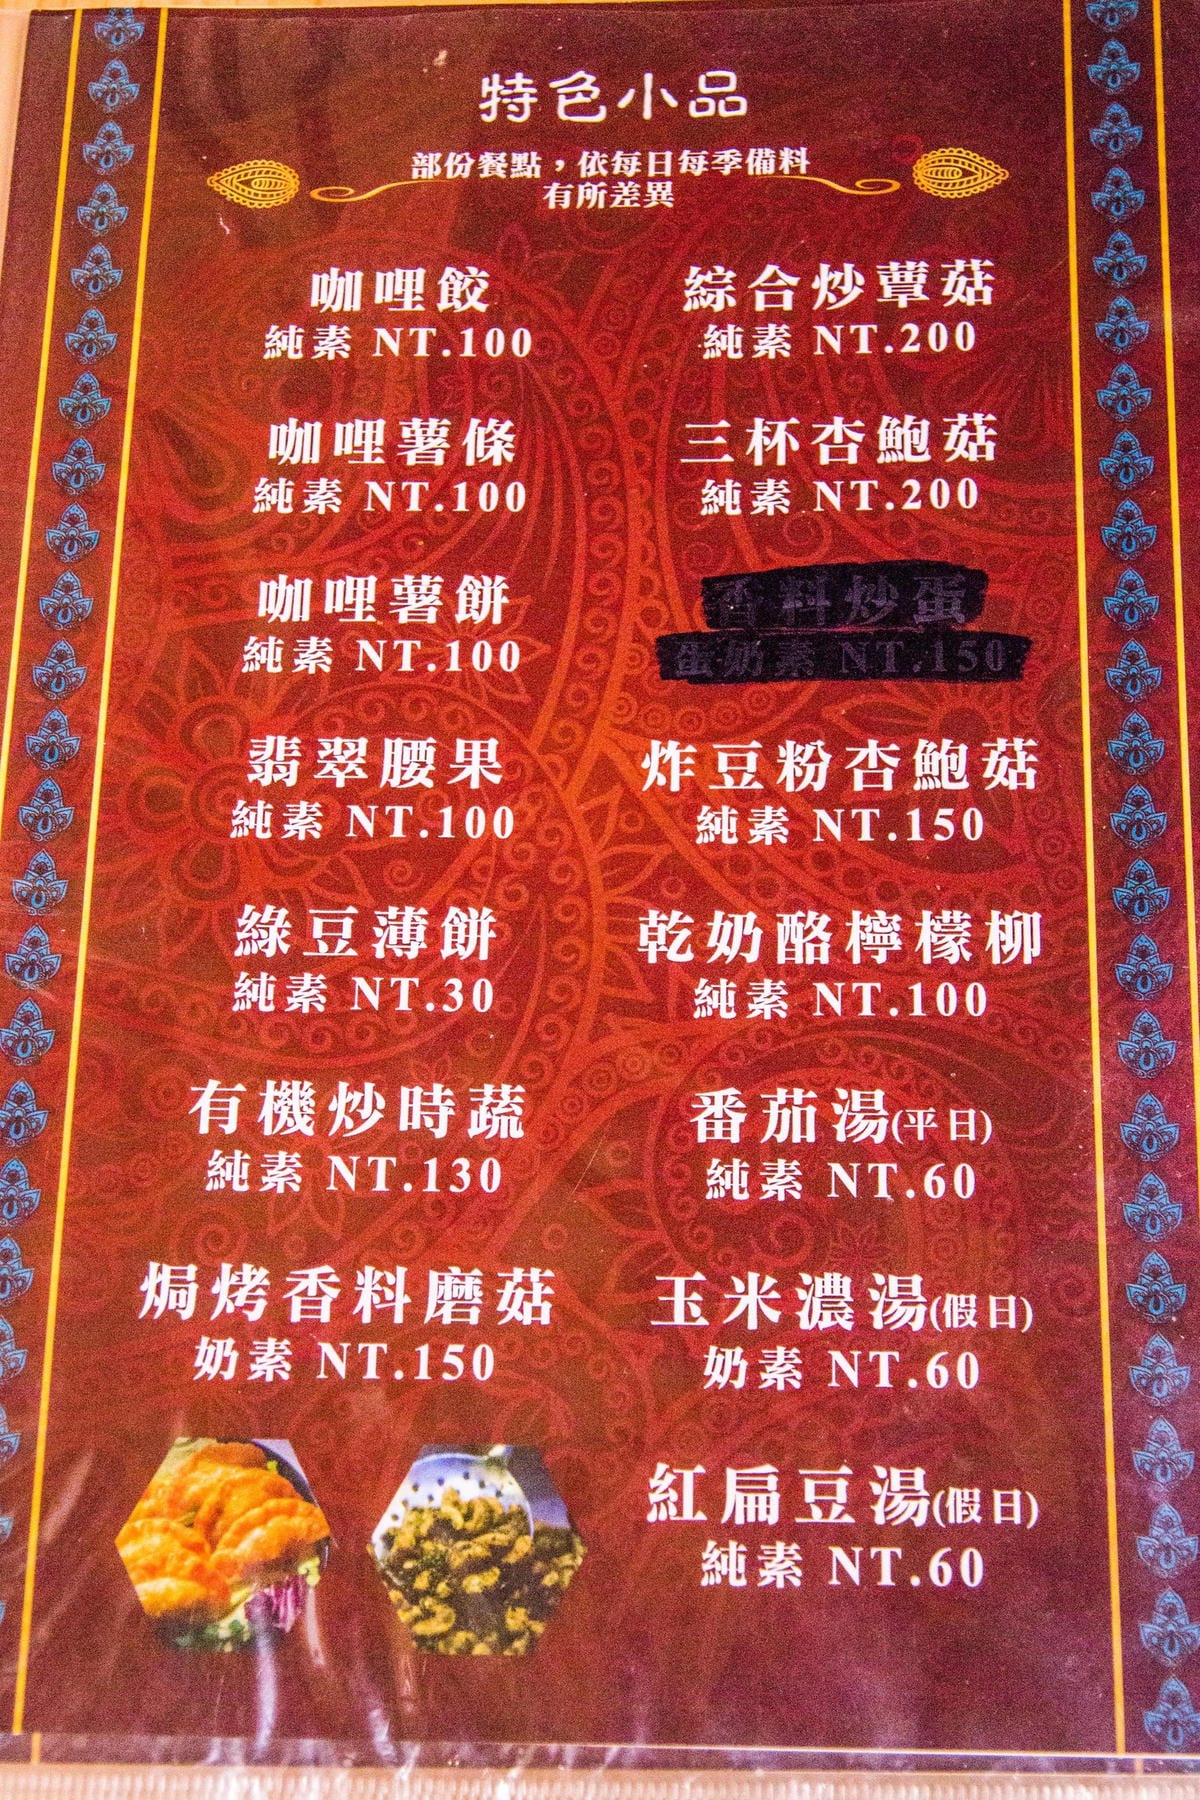 特色小品
部份餐點，依每日每季備料
有所差異
咖哩餃
純素 NT.100
咖哩薯條
純素 NT.100
咖哩薯餅
純素 NT.100
翡翠腰果
純素 NT.100
綠豆薄餅
純素 NT.30
有機炒時蔬
純素 NT.130
焗烤香料磨菇
奶素 NT.150
綜合炒蕈菇
純素 NT.200
三杯杏鮑菇
純素 NT.200
香料炒蛋
蛋奶素 NT.150
炸豆粉杏鮑菇
純素 NT.150
乾奶酪檸檬柳
純素 NT.100
番茄湯(平日)
純素 NT.60
玉米濃湯(假日)
奶素 NT.60
紅扁豆湯(假日)
純素 NT.60